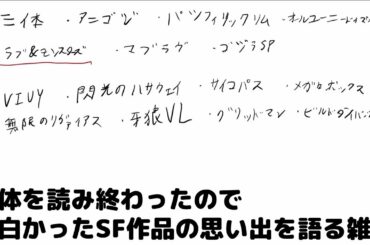 三体 ・アニゴジ ・パシフィックリム ・オールユーニードイズ
ラブ&モンスターズ ・マブラヴ ・ゴジラSP
VIVY ・閃光のハサウェイ ・サイコパス ・メガロボックス
無限のリヴァイアス ・牙狼VL ・グリッドマン ・ビルドダイバ
体を読み終わったので
白かったSF作品の思い出を語る雑